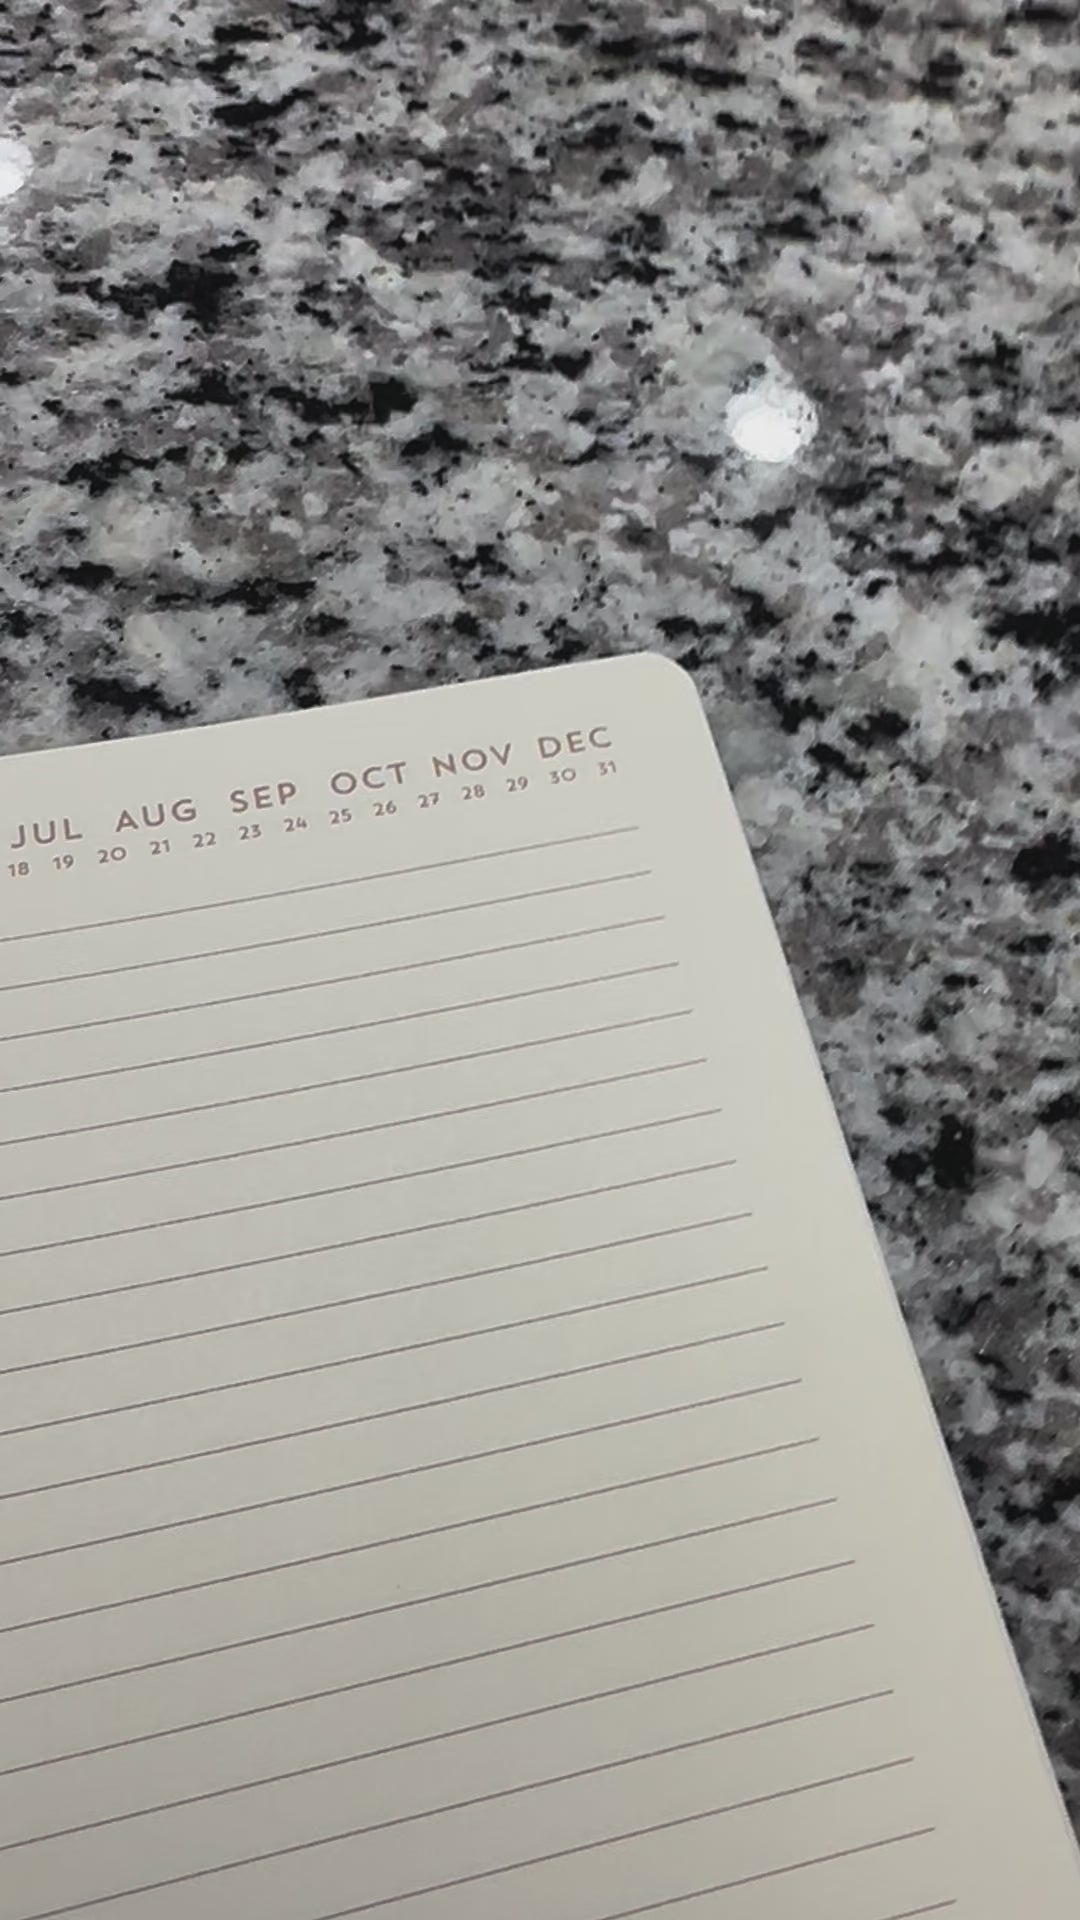 JUL AUG SEP OCT NOV DEC
18 19 20 21 22 23 24 25 26 27 28 29 30 31